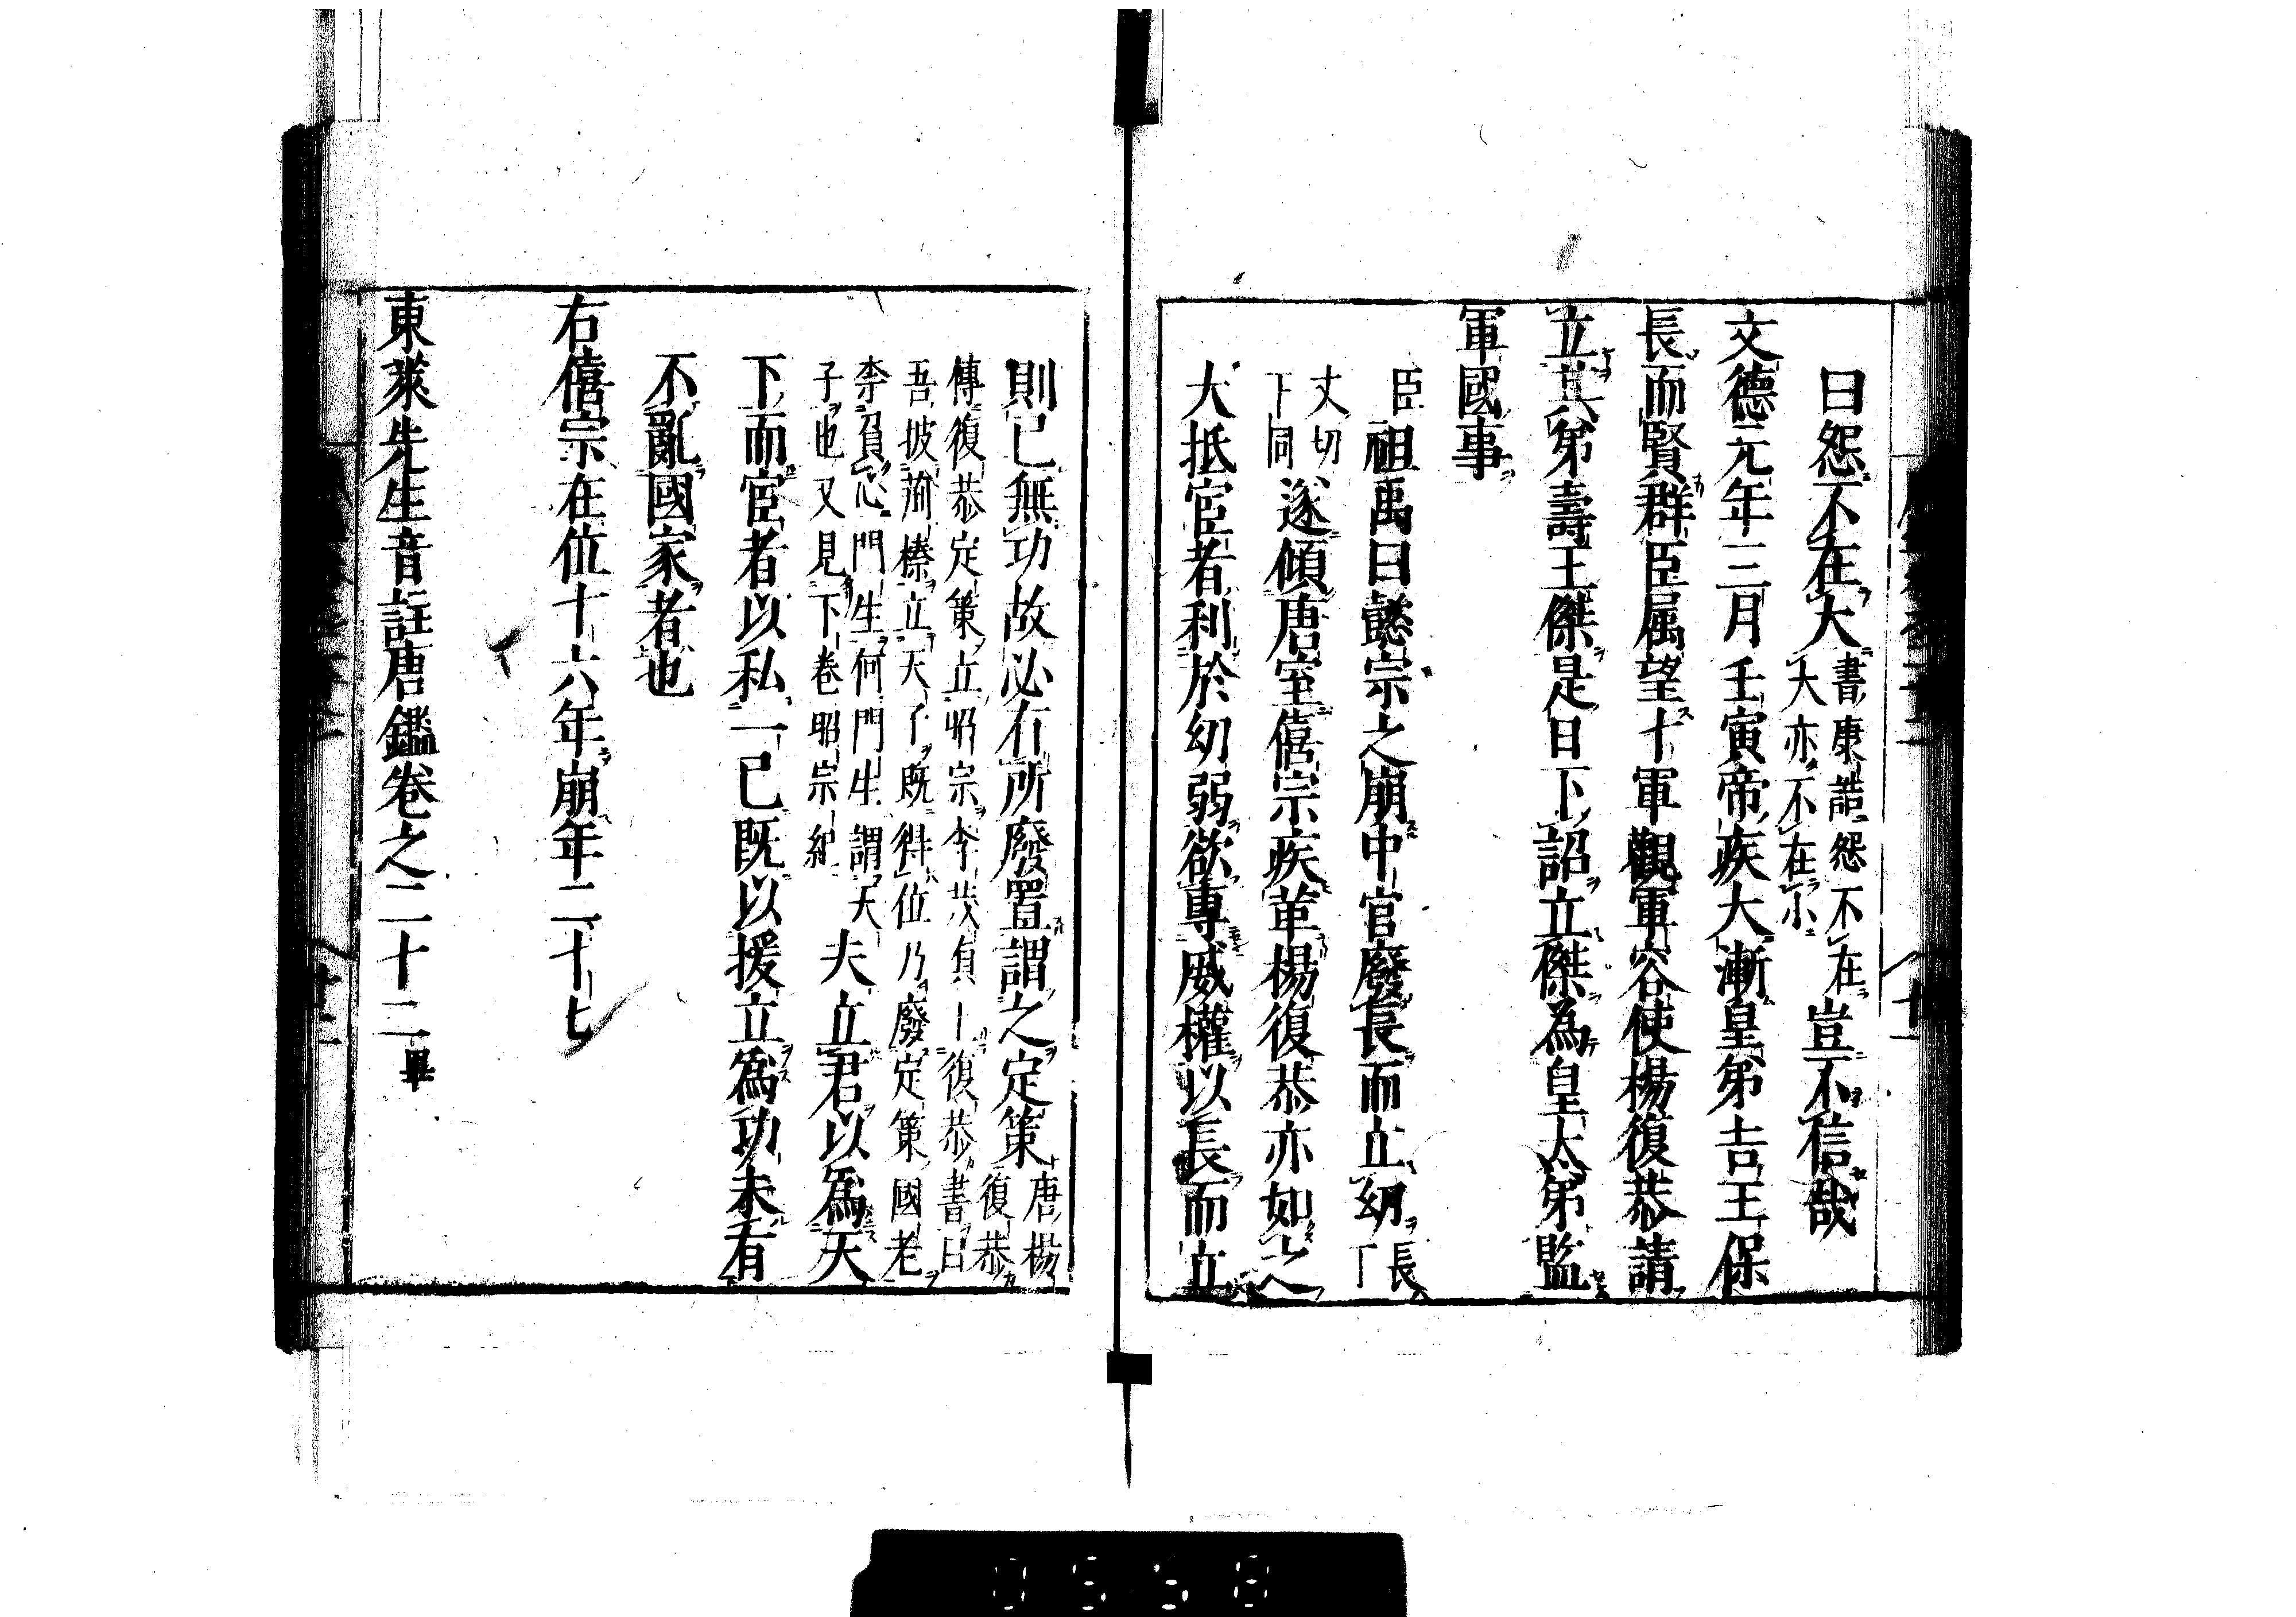 曰怨不在大書康誥怨不在大亦不在小豈不信哉
文德元年三月壬寅帝疾大漸皇弟吉王保
長而賢群臣属望十軍觀軍容使楊復恭請
立其弟壽王傑是日下詔立傑為皇太弟監
軍國事
臣祖禹曰懿宗之崩中官廢長而立幼長丁
丈切下同遂傾唐室僖宗疾革楊復恭亦如之
大抵宦者利於幼弱欲專威權以長而立
則已無功故必有所廢置謂之定策唐楊復恭
傳復恭定策立昭宗李茂貞上復恭書曰
吾披荊榛立天子既得位乃廢定策國老
李負心門生何門生謂天
子也又見下卷昭宗紀夫立君以為天
下而宦者以私一已既以援立為功未有
不亂國家者也
右僖宗在位十六年崩年二十七
東萊先生音註唐鑑卷之二十二畢